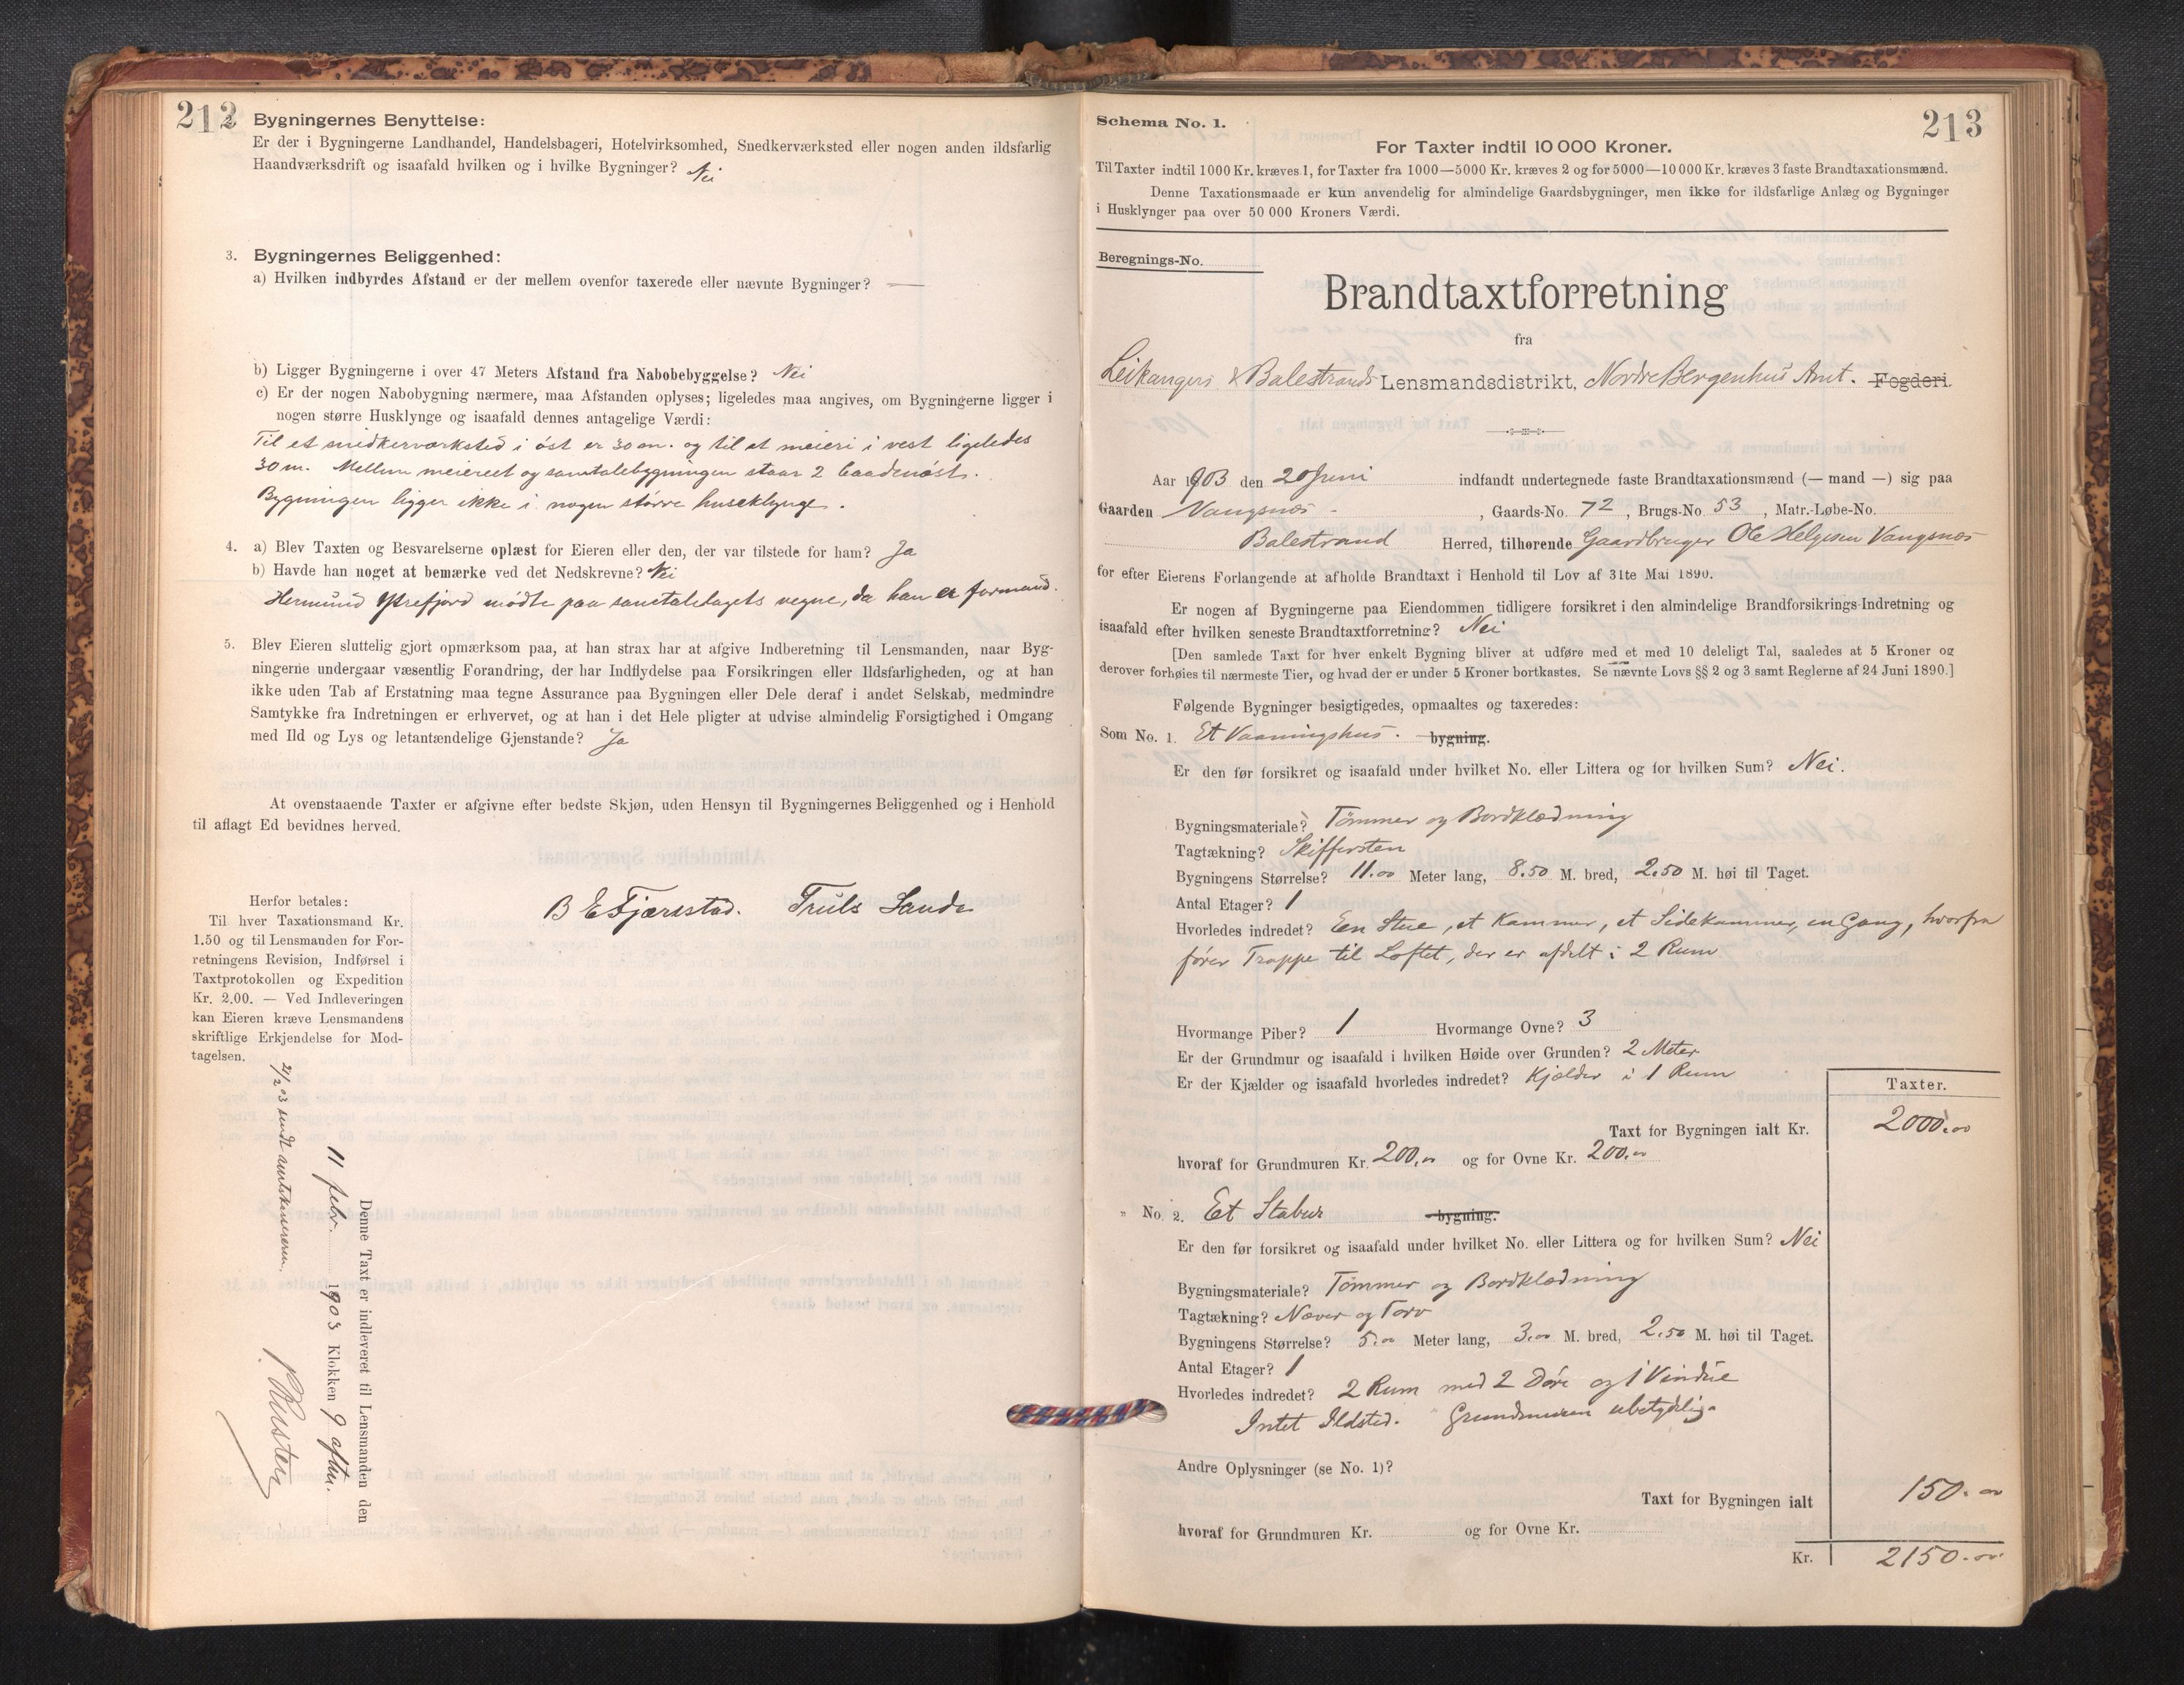 212
2. Bygningernes Benyttelse:
Er der i Bygningerne Landhandel, Handelsbageri, Hotelvirksomhed, Snedkerværksted eller nogen anden ildsfarlig
Haandværksdrift og isaafald hvilken og i hvilke Bygninger? Nei
3. Bygningernes Beliggenhed:
a) Hvilken indbyrdes Afstand er der mellem ovenfor taxerede eller nævnte Bygninger? —
b) Ligger Bygningerne i over 47 Meters Afstand fra Nabobebyggelse? Nei
c) Er der nogen Nabobygning nærmere, maa Afstanden oplyses; ligeledes maa angives, om Bygningerne ligger i
nogen større Husklynge og isaafald dennes antagelige Værdi:
Til et snedkerværksted i øst er 30 m. og til et meieri i vest ligeledes
30 m. Mellem meieriet og samtalebygningen staar 2 baadenøst.
Bygningen ligger ikke i nogen større huseklynge.
4. a) Blev Taxten og Besvarelserne oplæst for Eieren eller den, der var tilstede for ham? Ja
b) Havde han noget at bemærke ved det Nedskrevne? Nei
Hermund Ytrefjord mødte paa samtalelagets vegne, da han er formand.
5. Blev Eieren sluttelig gjort opmærksom paa, at han strax har at afgive Indberetning til Lensmanden, naar Byg-
ningerne undergaar væsentlig Forandring, der har Indflydelse paa Forsikringen eller Ildsfarligheden, og at han
ikke uden Tab af Erstatning maa tegne Assurance paa Bygningen eller Dele deraf i andet Selskab, medmindre
Samtykke fra Indretningen er erhvervet, og at han i det Hele pligter at udvise almindelig Forsigtighed i Omgang
med Ild og Lys og letantændelige Gjenstande? Ja
At ovenstaaende Taxter er afgivne efter bedste Skjøn, uden Hensyn til Bygningernes Beliggenhed og i Henhold
til aflagt Ed bevidnes herved.
B E Fjærestad. Truls Sande
Herfor betales:
Til hver Taxationsmand Kr.
1.50 og til Lensmanden for For-
retningens Revision, Indførsel i
Taxtprotokollen og Expedition
Kr. 2.00. — Ved Indleveringen
kan Eieren kræve Lensmandens
skriftlige Erkjendelse for Mod-
tagelsen.
Denne Taxt er indleveret til Lensmanden den
11 febr. 1903 Klokken 9 aften.
21/2 03 sendt amtskassereren.
213
Schema No. 1.
For Taxter indtil 10 000 Kroner.
Til Taxter indtil 1000 Kr. kræves 1, for Taxter fra 1000—5000 Kr. kræves 2 og for 5000—10 000 Kr. kræves 3 faste Brandtaxationsmænd.
Denne Taxationsmaade er kun anvendelig for almindelige Gaardsbygninger, men ikke for ildsfarlige Anlæg og Bygninger
i Husklynger paa over 50 000 Kroners Værdi.
Beregnings-No.
Brandtaxtforretning
fra
Leikangers & Balestrands Lensmandsdistrikt, Nordre Bergenhus Amt. Fogderi.
Aar 1903 den 20 Juni indfandt undertegnede faste Brandtaxationsmænd (— mand —) sig paa
Gaarden Vangsnæs -, Gaards-No. 72, Brugs-No. 53, Matr.-Løbe-No.
Balestrand Herred, tilhørende Gaardbruger Ole Helgesen Vangsnæs
for efter Eierens Forlangende at afholde Brandtaxt i Henhold til Lov af 31te Mai 1890.
Er nogen af Bygningerne paa Eiendommen tidligere forsikret i den almindelige Brandforsikrings-Indretning og
isaafald efter hvilken seneste Brandtaxtforretning? Nei
[Den samlede Taxt for hver enkelt Bygning bliver at udføre med et med 10 deleligt Tal, saaledes at 5 Kroner og
derover forhøies til nærmeste Tier, og hvad der er under 5 Kroner bortkastes. Se nævnte Lovs §§ 2 og 3 samt Reglerne af 24 Juni 1890.]
Følgende Bygninger besigtigedes, opmaaltes og taxeredes:
Som No. 1. Et Vaaningshus. bygning.
Er den før forsikret og isaafald under hvilket No. eller Littera og for hvilken Sum? Nei.
Bygningsmateriale? Tømmer og Bordklædning
Tagtækning? Skiffersten
Bygningens Størrelse? 11.00 Meter lang, 8.50 M. bred, 2.50 M. høi til Taget.
Antal Etager? 1
Hvorledes indredet? En Stue, et Kammer, et Sidekammer, en Gang, hvorfra
fører Trappe til Loftet, der er afdelt i 2 Rum
Hvormange Piber? 1 Hvormange Ovne? 3
Er der Grundmur og isaafald i hvilken Høide over Grunden? 2 Meter
Er der Kjælder og isaafald hvorledes indredet? Kjælder i 1 Rum
Taxter.
Taxt for Bygningen ialt Kr. 2000.00
hvoraf for Grundmuren Kr. 200,00 og for Ovne Kr. 200.00
" No. 2. Et Stabur bygning.
Er den før forsikret og isaafald under hvilket No. eller Littera og for hvilken Sum? Nei
Bygningsmateriale? Tømmer og Bordklædning
Tagtækning? Næver og Torv
Bygningens Størrelse? 5.00 Meter lang, 3.00 M. bred, 2.50 M. høi til Taget.
Antal Etager? 1
Hvorledes indredet? 2 Rum med 2 Døre og 1 Vindue
Intet Ildsted. Grundmuren ubetydelig.
Andre Oplysninger (se No. 1)?
Taxt for Bygningen ialt 150.00
hvoraf for Grundmuren Kr. og for Ovne Kr.
Kr. 2150.00